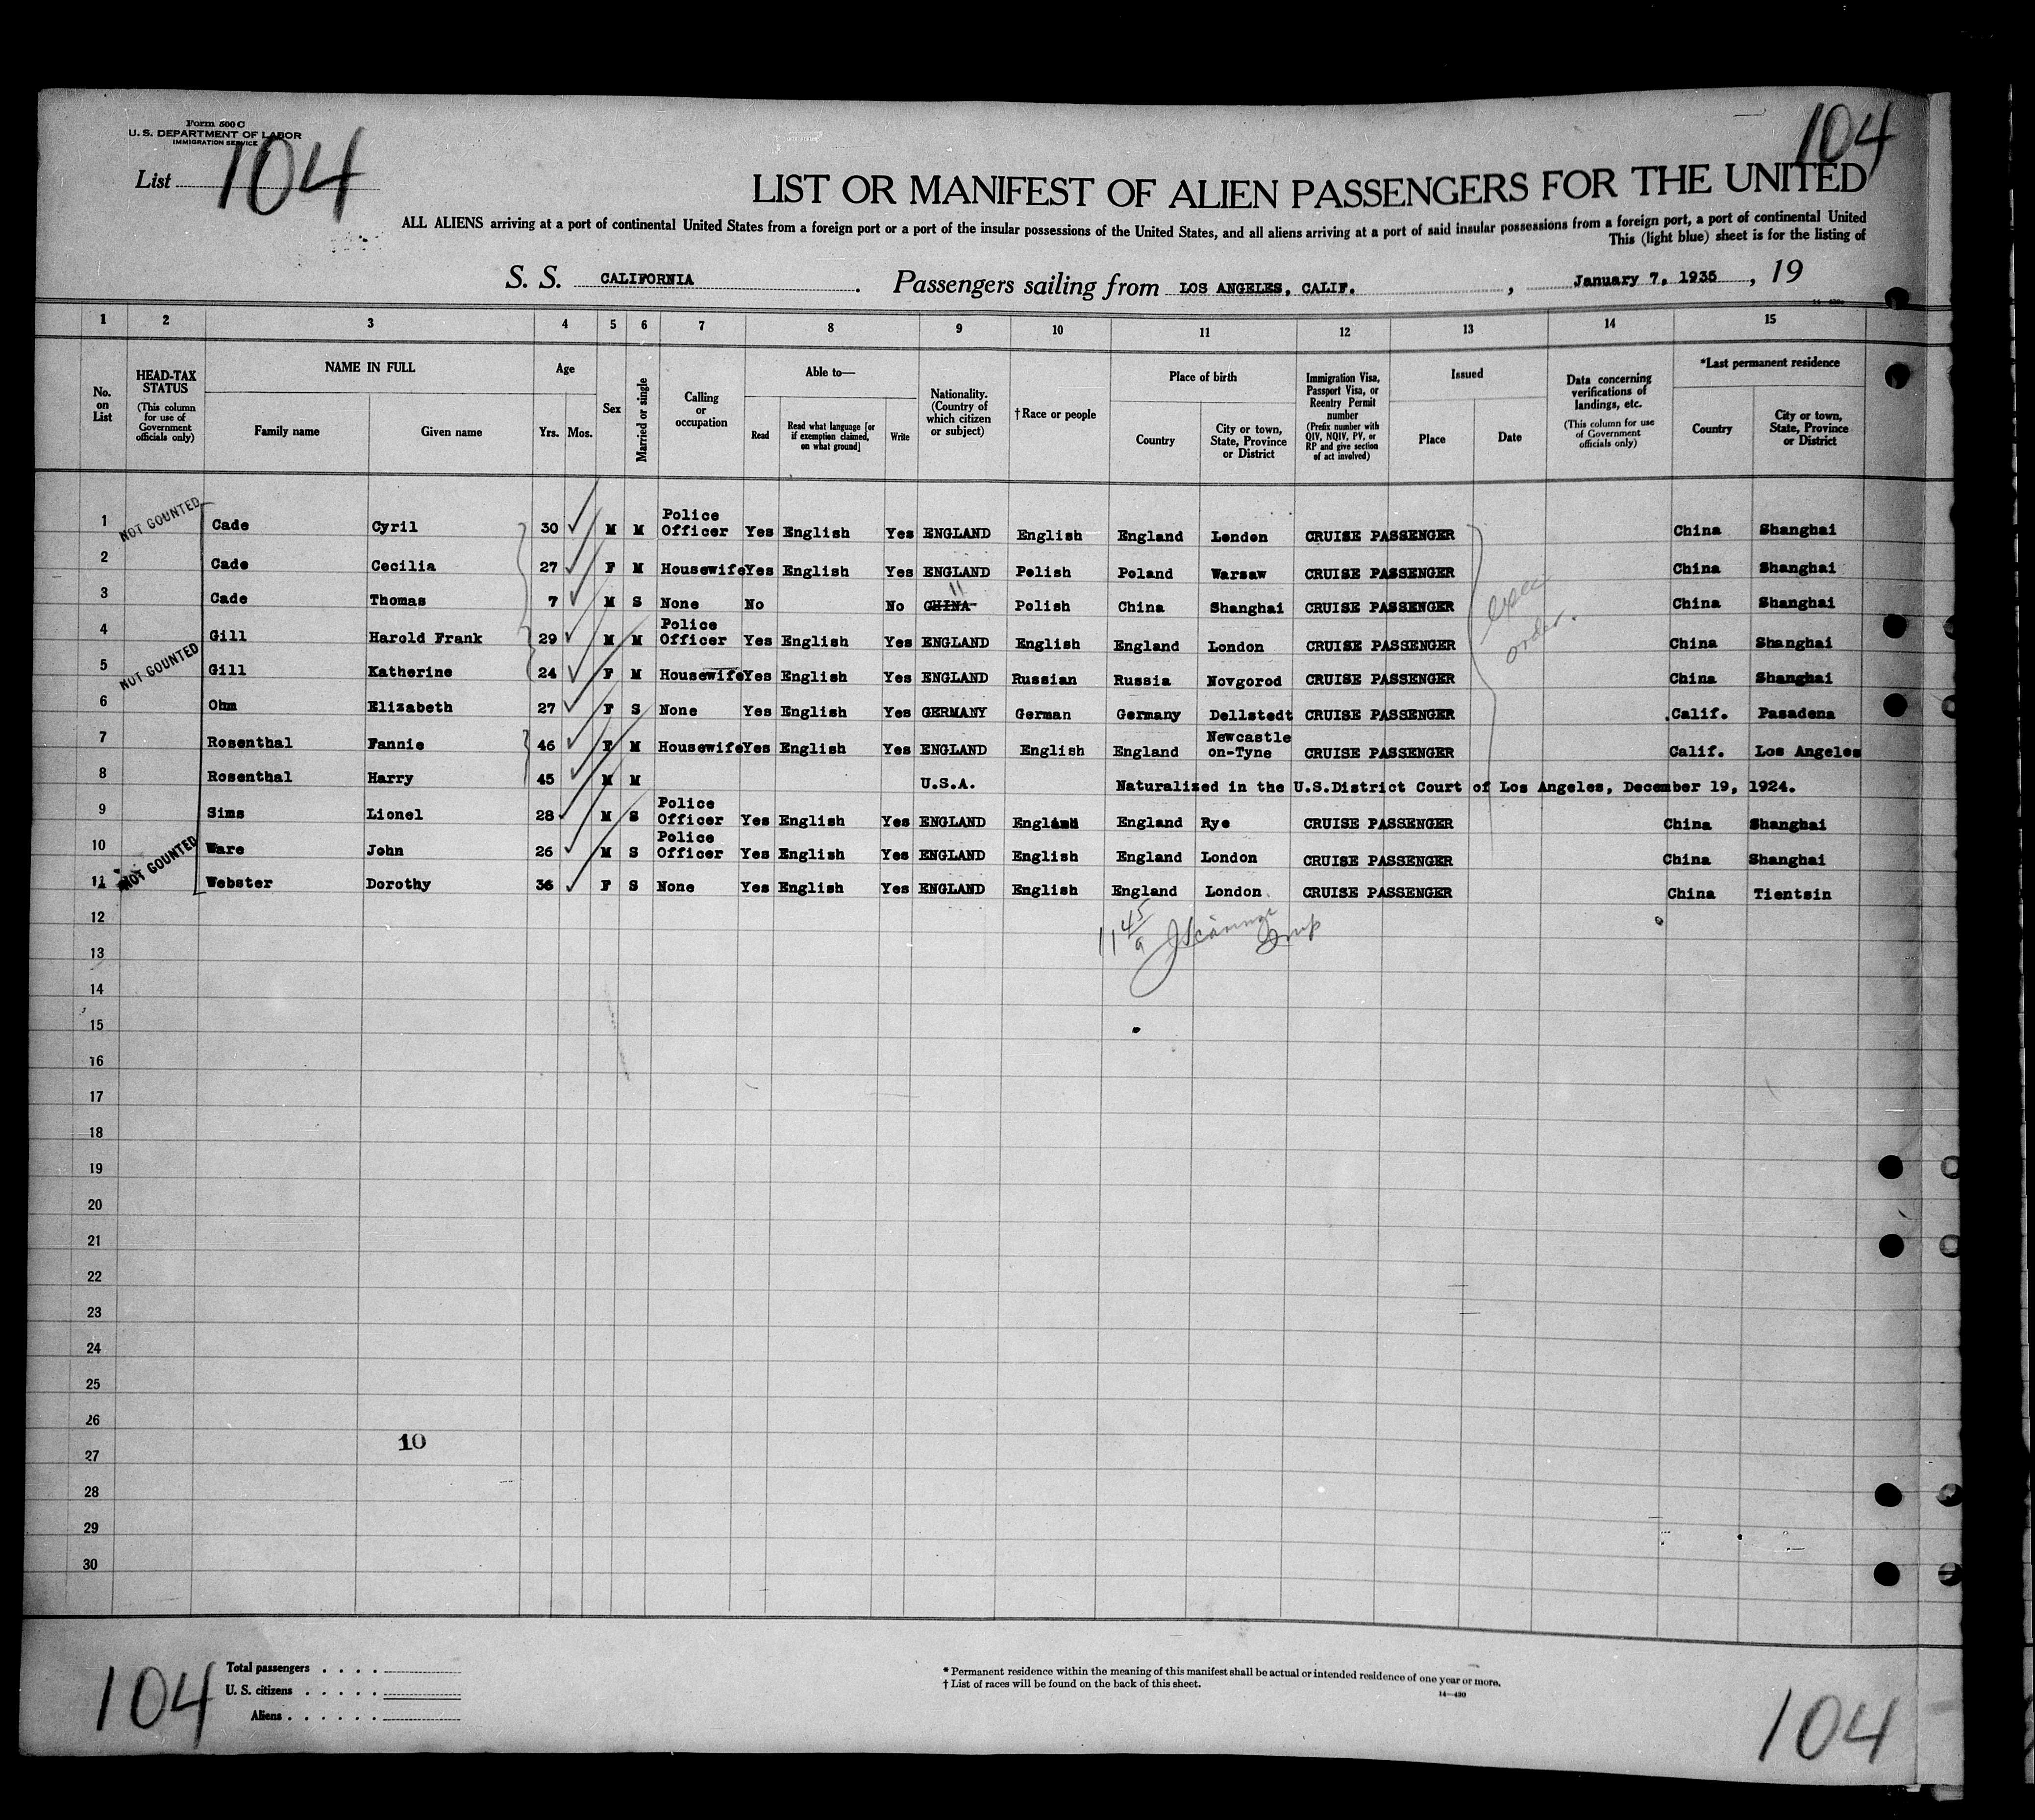 Form 500 C
U. S. DEPARTMENT OF LABOR
IMMIGRATION SERVICE
List 104
104
LIST OR MANIFEST OF ALIEN PASSENGERS FOR THE UNITED
ALL ALIENS arriving at a port of continental United States from a foreign port or a port of the insular possessions of the United States, and all aliens arriving at a port of said insular possessions from a foreign port, a port of continental United
This (light blue) sheet is for the listing of
S. S. CALIFORNIA. Passengers sailing from LOS ANGELES, CALIF. , January 7, 1935, 19
1 2 3 4 5 6 7 8 9 10 11 12 13 14 15
No. on List
HEAD-TAX STATUS (This column for use of Government officials only)
NAME IN FULL
Family name Given name
Age
Yrs. Mos.
Sex
Married or single
Calling or occupation
Able to—
Read
Read what language [or if exemption claimed, on what ground]
Write
Nationality. (Country of which citizen or subject)
† Race or people
Place of birth
Country
City or town, State, Province or District
Immigration Visa, Passport Visa, or Reentry Permit number (Prefix number with QIV, NQIV, PV, or RP and give section of act involved)
Issued
Place Date
Data concerning verifications of landings, etc. (This column for use of Government officials only)
*Last permanent residence
Country
City or town, State, Province or District
1 NOT COUNTED Cade Cyril 30 M M Police Officer Yes English Yes ENGLAND English England London CRUISE PASSENGER China Shanghai
2 Cade Cecilia 27 F M Housewife Yes English Yes ENGLAND Polish Poland Warsaw CRUISE PASSENGER China Shanghai
3 Cade Thomas 7 M S None No No CHINA " Polish China Shanghai CRUISE PASSENGER China Shanghai
4 Gill Harold Frank 29 M M Police Officer Yes English Yes ENGLAND English England London CRUISE PASSENGER China Shanghai
5 NOT COUNTED Gill Katherine 24 F M Housewife Yes English Yes ENGLAND Russian Russia Novgorod CRUISE PASSENGER China Shanghai
6 Ohm Elizabeth 27 F S None Yes English Yes GERMANY German Germany Dellstedt CRUISE PASSENGER Calif. Pasadena
7 Rosenthal Fannie 46 F M Housewife Yes English Yes ENGLAND English England Newcastle on-Tyne CRUISE PASSENGER Calif. Los Angeles
8 Rosenthal Harry 45 M M U.S.A. Naturalized in the U.S.District Court of Los Angeles, December 19, 1924.
9 Sims Lionel 28 M S Police Officer Yes English Yes ENGLAND English England Rye CRUISE PASSENGER China Shanghai
10 Ware John 26 M S Police Officer Yes English Yes ENGLAND English England London CRUISE PASSENGER China Shanghai
11 NOT COUNTED Webster Dorothy 36 F S None Yes English Yes ENGLAND English England London CRUISE PASSENGER China Tientsin
order.
12
11 45/a
13
14
15
16
17
18
19
20
21
22
23
24
25
26
10
27
28
29
30
104
Total passengers . . . .
U. S. citizens . . . . .
Aliens . . . . . .
* Permanent residence within the meaning of this manifest shall be actual or intended residence of one year or more.
† List of races will be found on the back of this sheet.
14—430
104